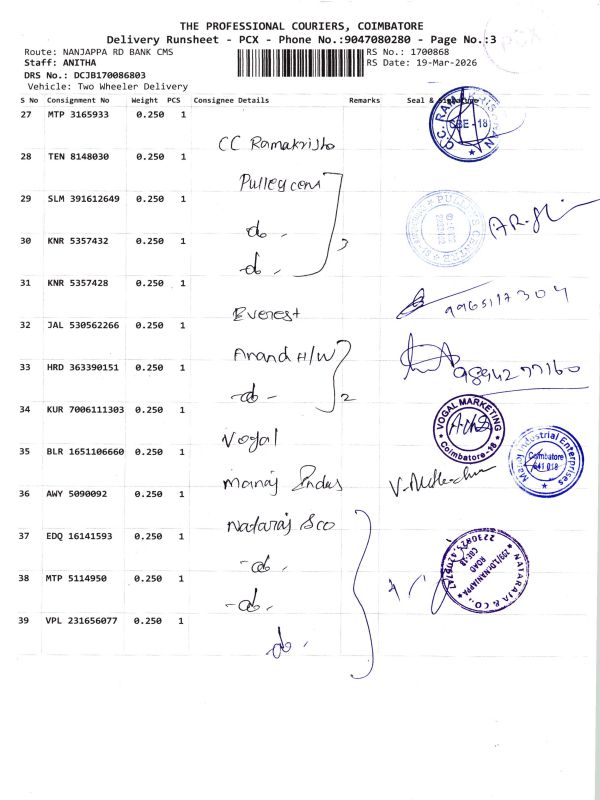 THE PROFESSIONAL COURIERS, COIMBATORE
Delivery Runsheet - PCX - Phone No.:9047080280 - Page No.:3
PCX
Route: NANJAPPA RD BANK CMS
RS No.: 1700868
Staff: ANITHA
RS Date: 19-Mar-2026
DRS No.: DCJB170086803
Vehicle: Two Wheeler Delivery
S No Consignment No Weight PCS Consignee Details Remarks Seal & Signature
27 MTP 3165933 0.250 1
CC Ramakrish
28 TEN 8148030 0.250 1
Pulley cen
29 SLM 391612649 0.250 1
do -
30 KNR 5357432 0.250 1
do - 3
31 KNR 5357428 0.250 1
Everest
9965117304
32 JAL 530562266 0.250 1
Anand H/W
33 HRD 363390151 0.250 1
9894277160
-do- 2
34 KUR 7006111303 0.250 1
Vogal
VOGAL MARKETING
Coimbatore-18
35 BLR 1651106660 0.250 1
manoj Indus
Industrial Enterprises
Coimbatore
641 018
36 AWY 5090092 0.250 1
Nataraj &co
37 EDQ 16141593 0.250 1
-do.
38 MTP 5114950 0.250 1
-do.
NATARAJA & CO.,
NANJAPPA
ROAD
CBE-18
39 VPL 231656077 0.250 1
do.